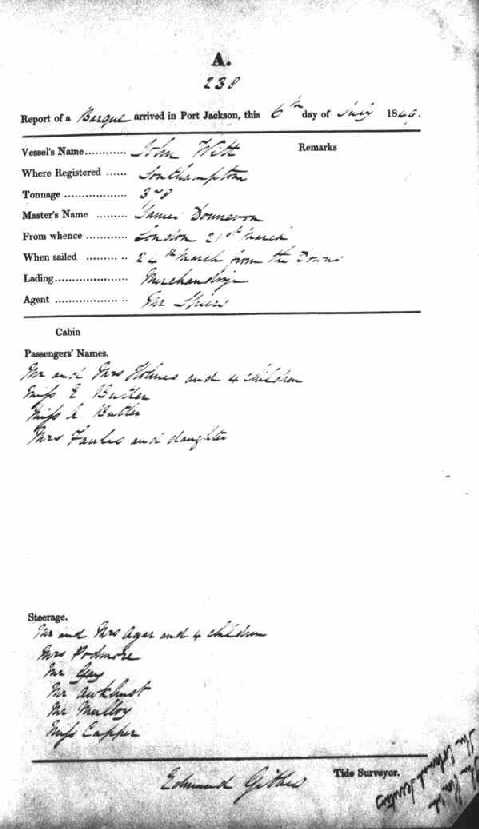 A.
238
Report of a Barque arrived in Port Jackson, this 6th day of July 184
Vessel's Name John Witt Remarks
Where Registered Southampton
Tonnage 3
Master's Name James Donnevon
From whence London 21st March
When sailed 24th March from the Downs
Lading Merchandize
Agent Mr Spiers
Cabin
Passengers' Names.
Mr and Mrs Holmes and 4 children
Miss E Butler
Miss Butler
Mrs and daughter
Steerage.
Mr and Mrs Agar and 4 children
Mrs Podmore
Mr Guy
Mr Awkhust
Mr Mulloy
Miss Capper
Edmund Tide Surveyor.